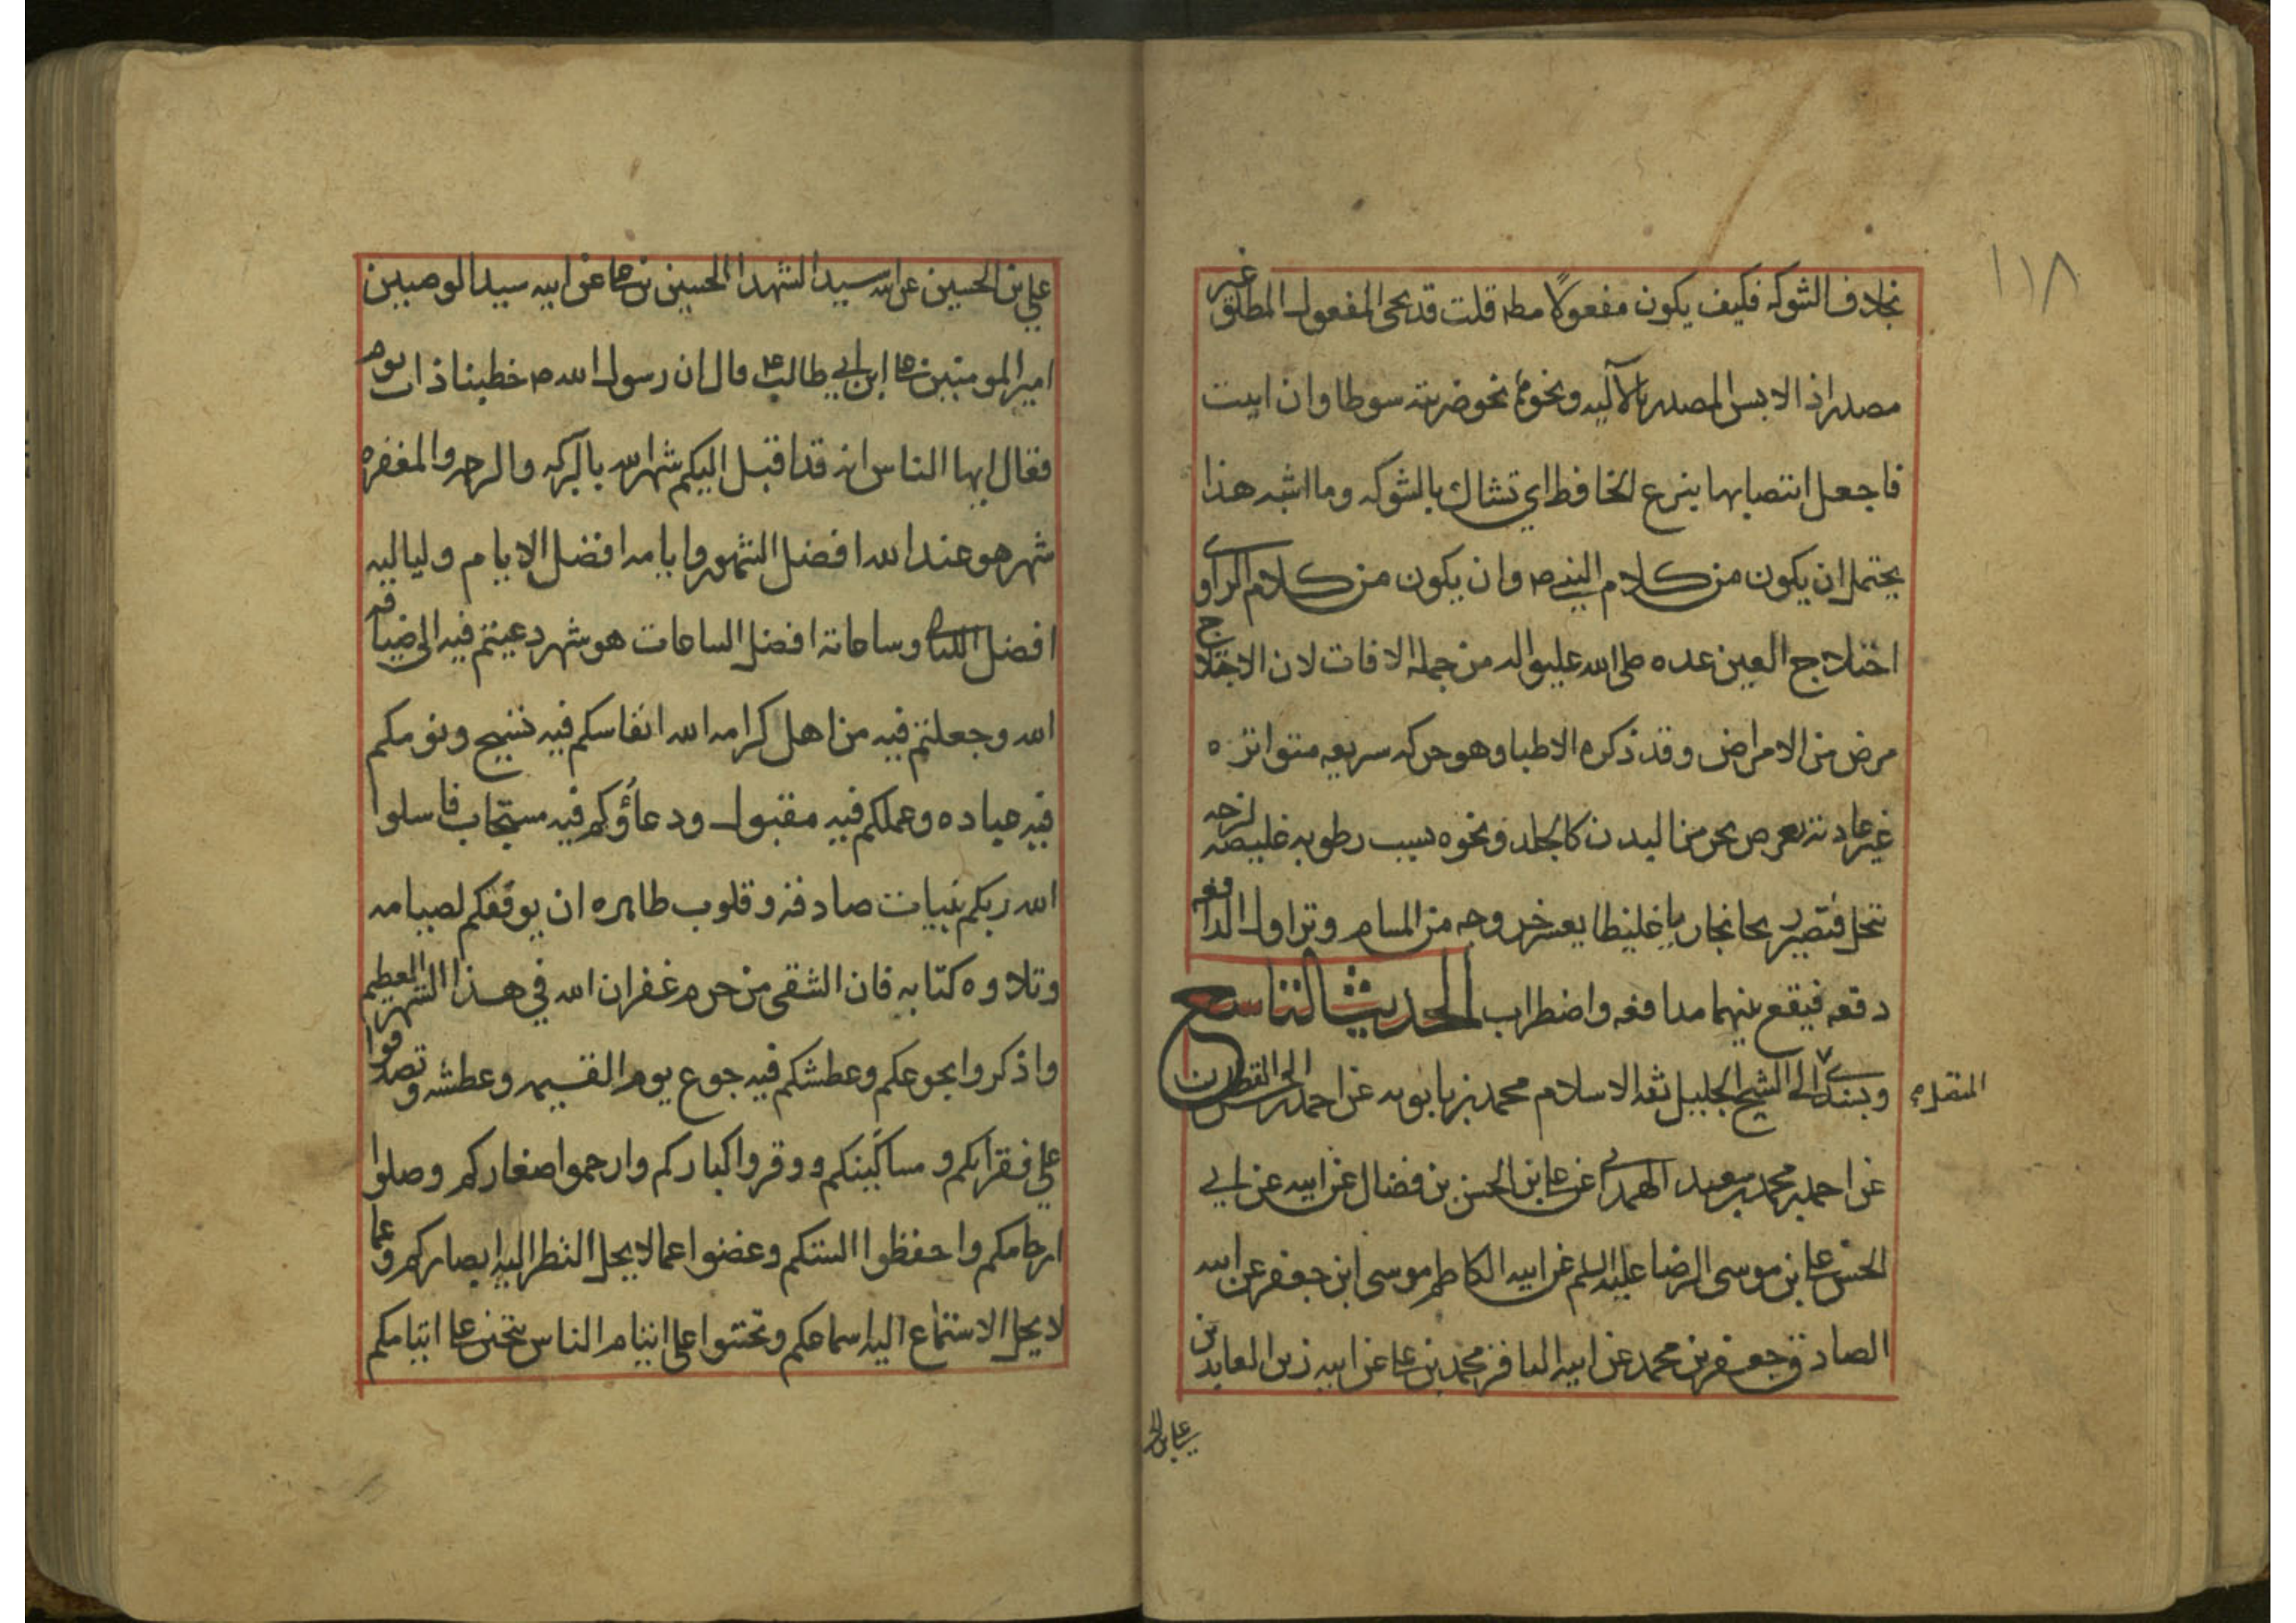 ١١٨
بخلاف الشوكه فكيف يكون مفعولًا مطه قلت قد يجى المفعول المطلق غير
مصدر اذا لابس المصدر بالآليه ونحوها نحو ضربته سوطا وان ابيت
فاجعل انتصابها بنزع الخافظ اي تشاك بالشوكه وما اشبه هذا
يحتمل ان يكون من كلام النبي ص وان يكون من كلام الراوي
اختلاج العين عده صلى الله عليه واله من جملة الافات لان الاختلاج
مرض من الامراض وقد ذكره الاطبا وهو حركه سريعه متواتره
غير عاديه تعرض لجزء من البدن كالجلد ونحوه بسبب رطوبه غليظه لزجه
تنحل فتصير بخار ياغليظا يعسر خروجه من المسام وتزاول الدافعه
دفعه فيقع بينهما مدافعه واضطراب الحديث التاسع
وبسندي الى الشيخ الجليل ثقه الاسلام محمد بن بابويه عن احمد بن الحسن القطان
المتصل
عن احمد بن محمد بن سعيد الهمداني عن على ابن الحسن بن فضال عن ابيه عن ابي
الحسن على بن موسى الرضا عليه السلم عن ابيه الكاظم موسى ابن جعفر عن ابيه
الصادق جعفر بن محمد عن ابيه الباقر محمد بن على عن ابيه زين العابدين
على بن الح
علي بن الحسين عن ابيه سيد الشهدا الحسين بن على عن ابيه سيد الوصيين
امير المومنين على ابن ابي طالب ع قال ان رسول الله ص خطبنا ذات يوم
فقال ايها الناس انه قد اقبل اليكم شهر الله بالبركه والرحمه والمغفره
شهر هو عند الله افضل الشهور وايامه افضل الايام ولياليه
افضل الليالي وساعاته افضل الساعات هو شهر دعيتم فيه الى ضيافه
الله وجعلتم فيه من اهل كرامه الله انفاسكم فيه تسبيح ونومكم
فيه عباده وعملكم فيه مقبول ودعاؤكم فيه مستجاب فاسلوا
الله ربكم بنيات صادقه وقلوب طاهره ان يوفقكم لصيامه
وتلاوه كتابه فان الشقى من حرم غفران الله في هذا الشهر العظيم
واذكروا بجوعكم وعطشكم فيه جوع يوم القيمه وعطشه وتصدقوا
علي فقرائكم ومساكينكم ووقروا كباركم وارحموا صغاركم وصلوا
ارحامكم واحفظوا السنتكم وغضوا عما لا يحل النظر اليه ابصاركم وعما
لا يحل الاستماع اليه اسماعكم وتحننوا على ايتام الناس يتحنن على ايتامكم